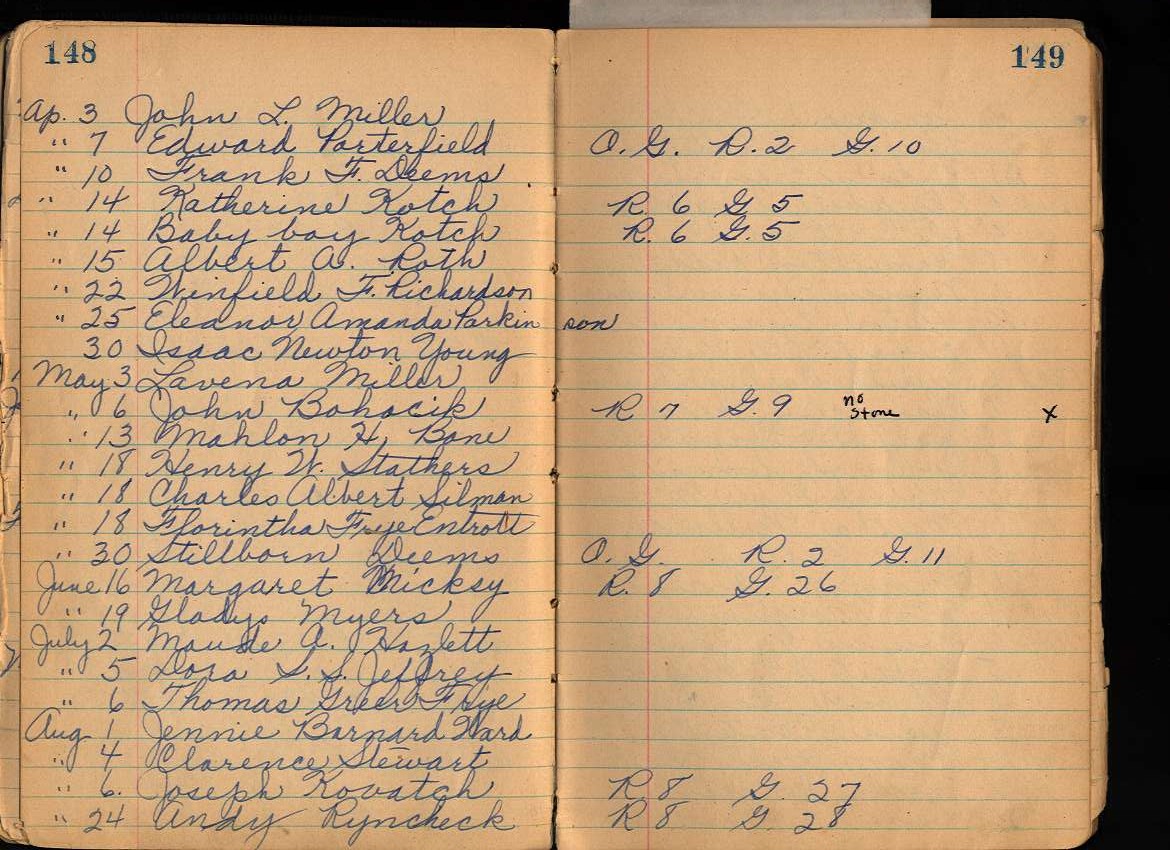 148
149
Ap. 3 John L. Miller
" 7 Edward Porterfield O.G. R.2 G.10
" 10 Frank F. Deems
" 14 Katherine Kotch R 6 G 5
" 14 Baby boy Kotch R. 6 G.5
" 15 Albert A. Roth
" 22 Winfield F. Richardson
" 25 Eleanor Amanda Parkinson
30 Isaac Newton Young
May 3 Lavena Miller
" 6 John Bohacik R 7 G.9 no stone x
" 13 Mahlon H. Bane
" 18 Henry W. Stathers
" 18 Charles Albert Silman
" 18 Florintha Frye Entrott
" 30 Stillborn Deems O.G. R.2 G.11
June 16 Margaret Micksy R.8 G.26
" 19 Gladys Myers
July 2 Maude A. Hazlett
" 5 Dora S.S. Jeffrey
" 6 Thomas Greer Frye
Aug 1 Jennie Barnard Ward
" 4 Clarence Stewart
" 6. Joseph Kovatch R 8 G. 27
" 24 Andy Ryncheck R 8 G. 28